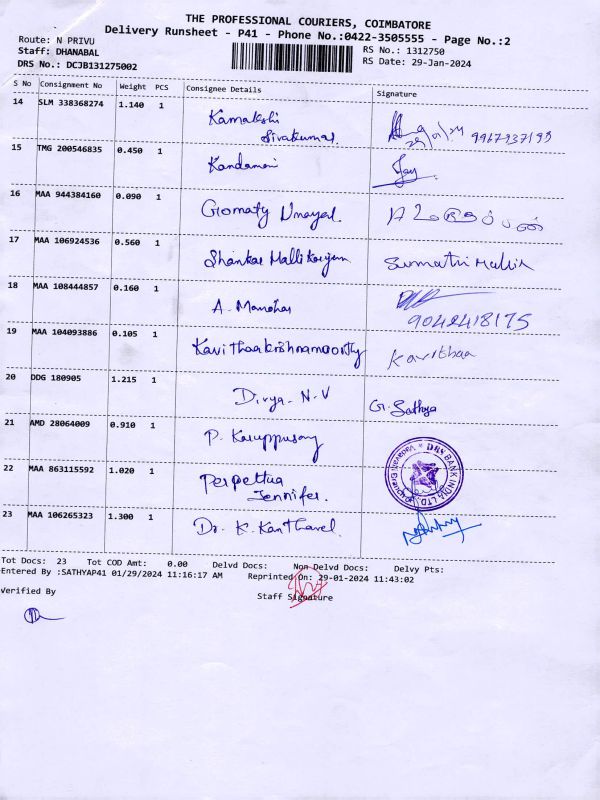 THE PROFESSIONAL COURIERS, COIMBATORE
Delivery Runsheet - P41 - Phone No.:0422-3505555 - Page No.:2
Route: N PRIVU
RS No.: 1312750
Staff: DHANABAL
RS Date: 29-Jan-2024
DRS No.: DCJB131275002
S No Consignment No Weight PCS Consignee Details Signature
14 SLM 338368274 1.140 1 Kamakshi
Sivakumar. 29/01/24 9967937199
15 TMG 200546835 0.450 1 Kandamani
16 MAA 944384160 0.090 1 Gomaty Unayal.
17 MAA 106924536 0.560 1 Shankar Mallikarjun Sumathi Mallik
18 MAA 108444857 0.160 1 A. Manohar
9042418175
19 MAA 104093886 0.105 1 Kavithaakrishnamoorthy Kavithaa
20 DDG 180905 1.215 1 Divya. N. V G. Sathya
21 AMD 28064009 0.910 1 P. Karuppusamy
22 MAA 863115592 1.020 1 Perpettua
Jennifer.
DRS BANK INDIA LTD
23 MAA 106265323 1.300 1 Dr. K. Kanthavel
Tot Docs: 23 Tot COD Amt: 0.00 Delvd Docs: Non Delvd Docs: Delvy Pts:
Entered By :SATHYAP41 01/29/2024 11:16:17 AM Reprinted On: 29-01-2024 11:43:02
Verified By
Staff Signature